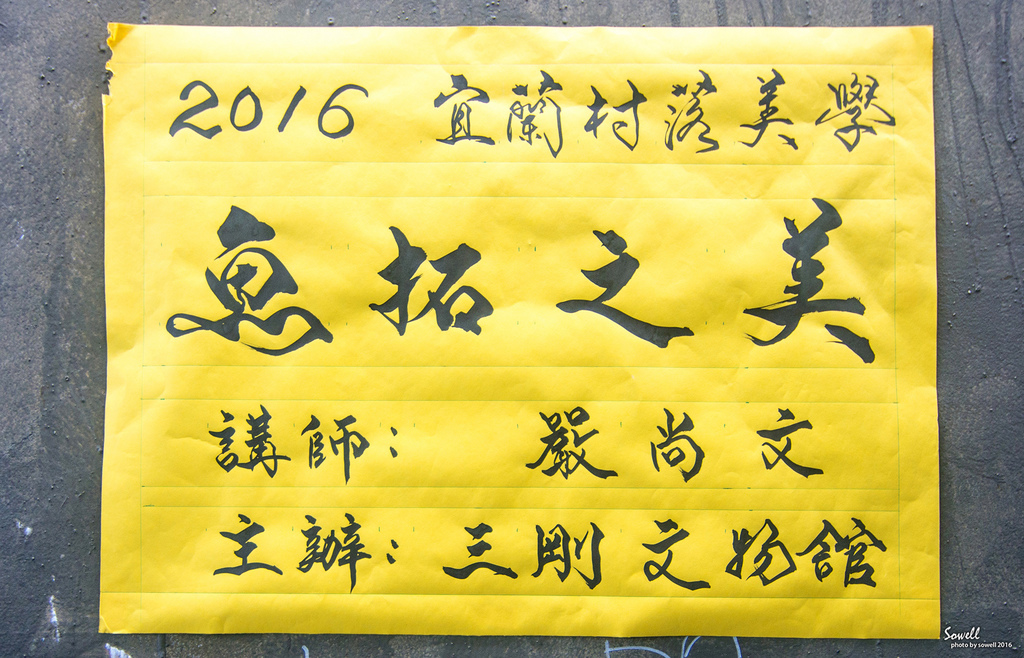 2016 宜蘭村落美學
魚拓之美
講師： 嚴尚文
主辦：三剛文物館
Sowell
photo by sowell 2016